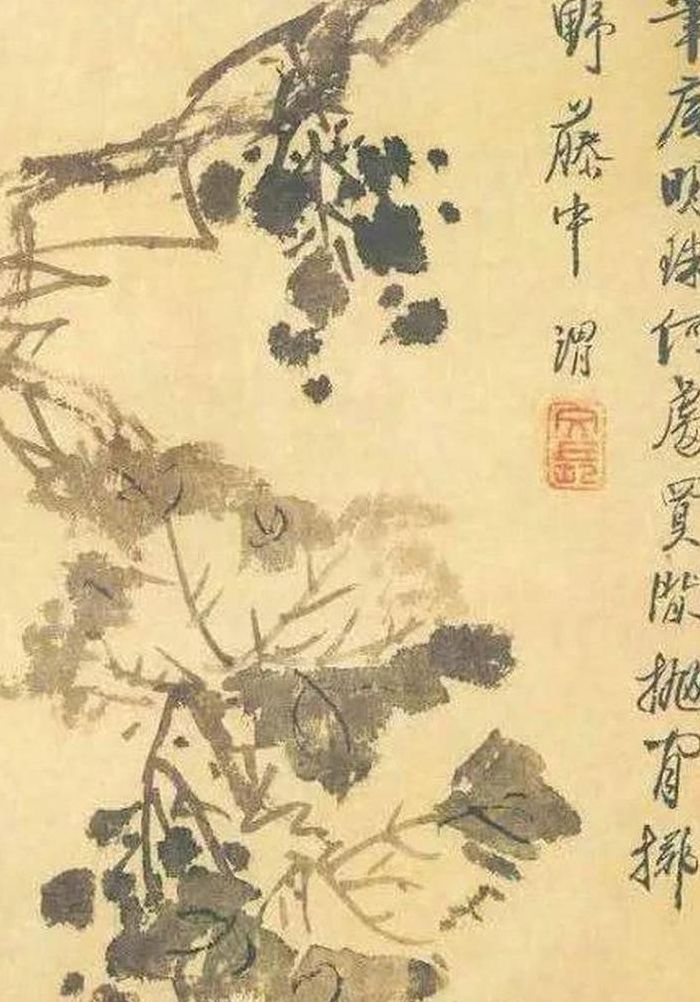 筆底明珠何處買閒拋閒擲
野藤中 渭